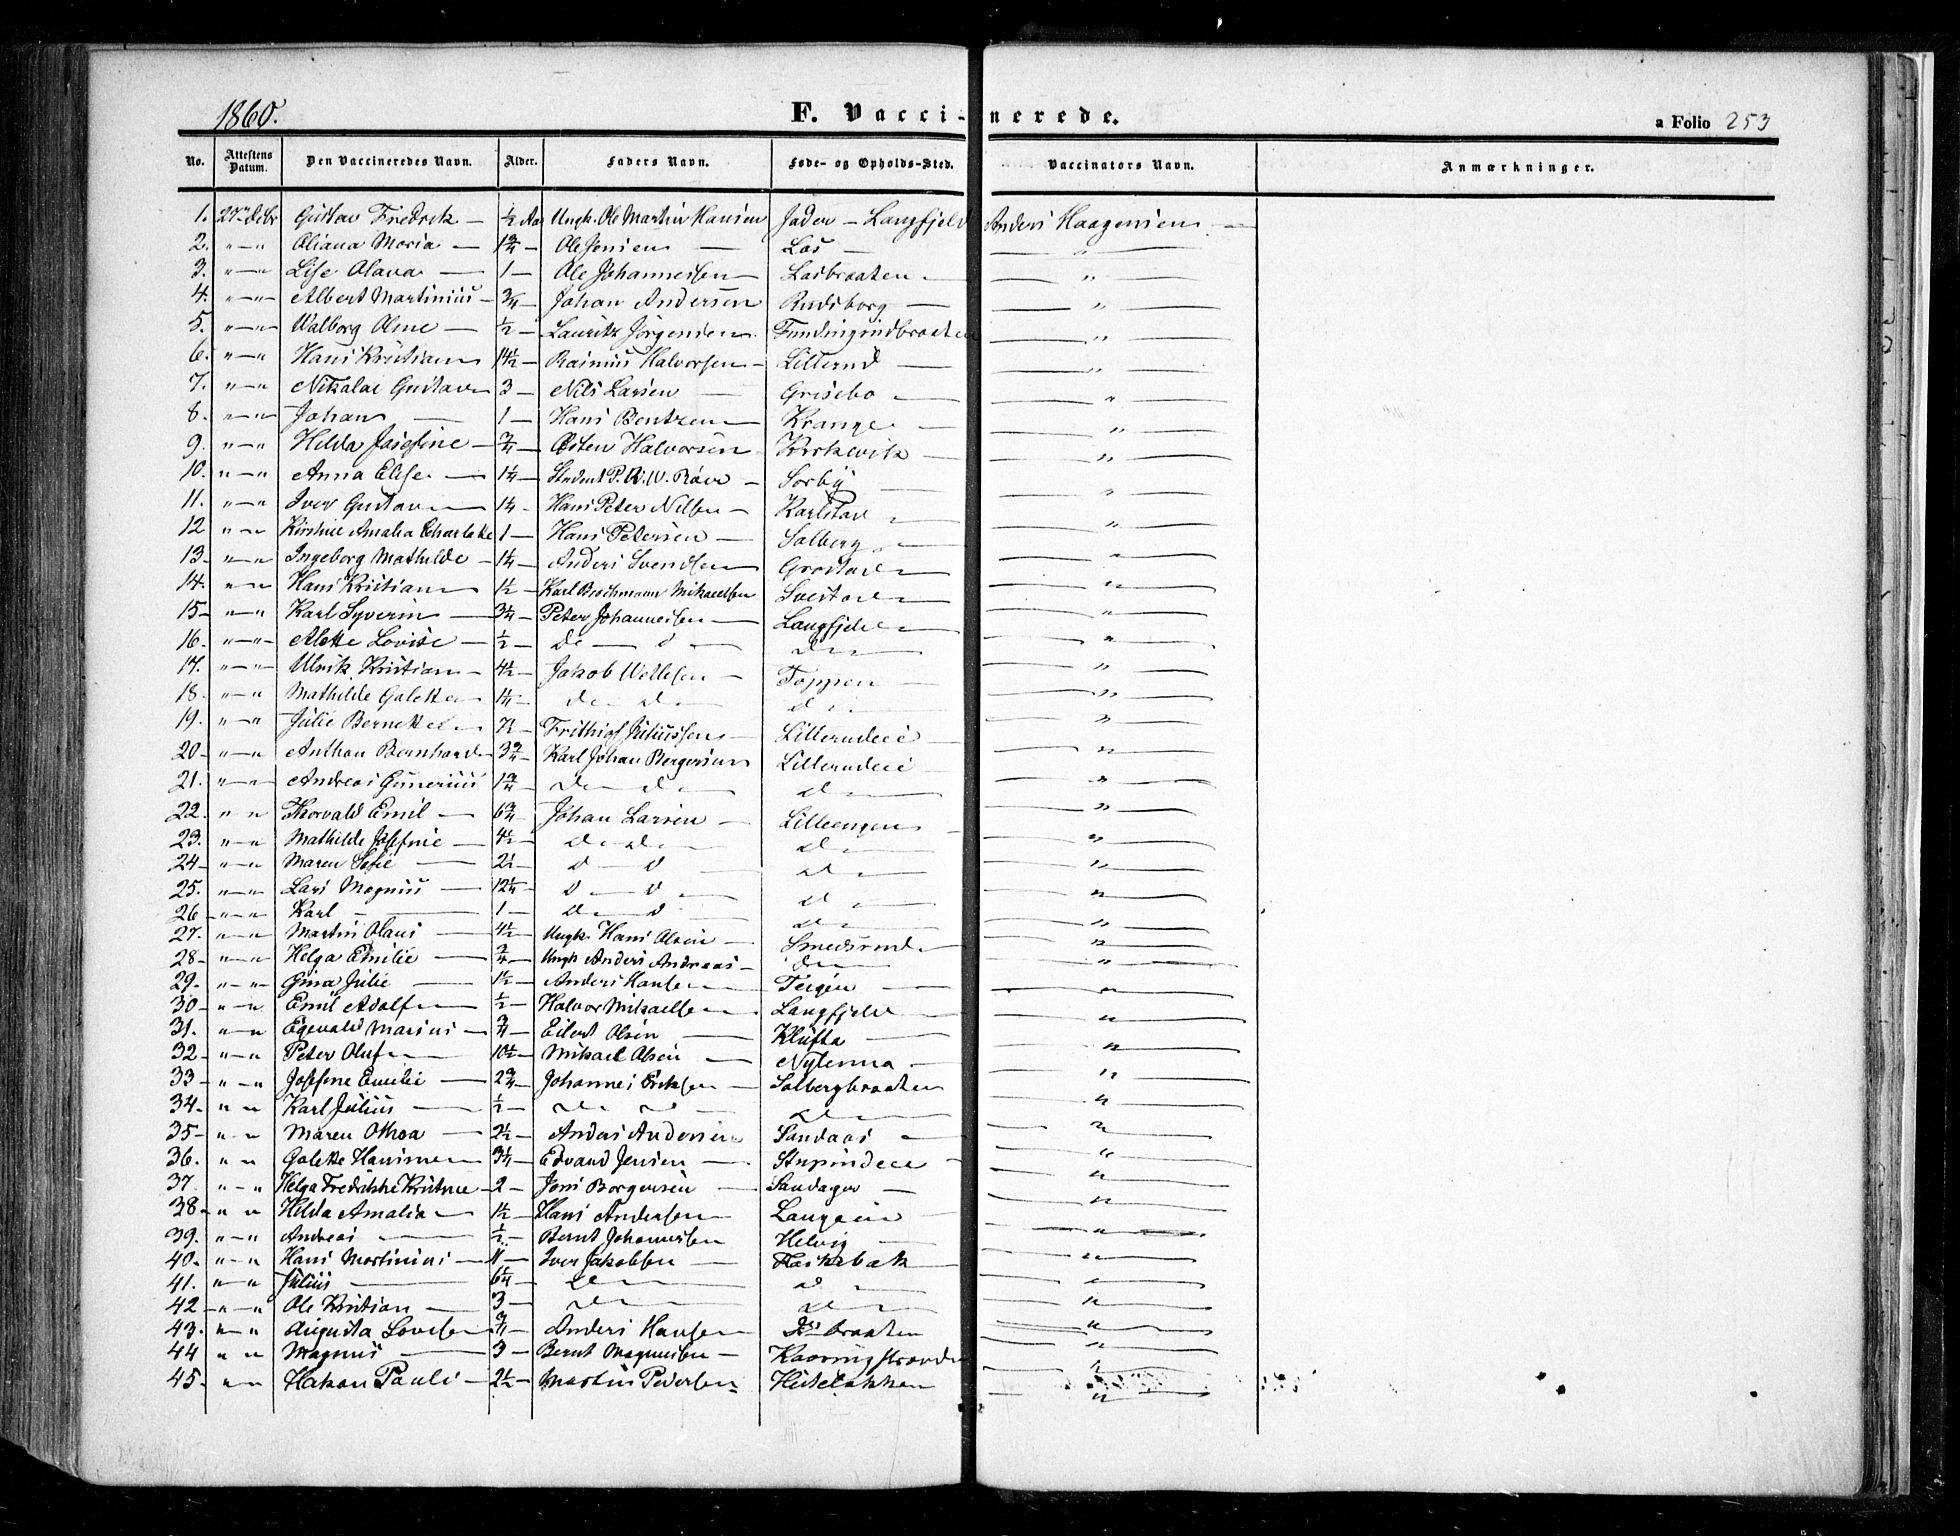 1860. F. Vaccinerede. a Folio 253
No. Attestens Datum. Den Vaccineredes Navn. Alder. Faders Navn. Føde- og Opholds-Sted. Vaccinators Navn. Anmærkninger.
1. 27 Gustav Fredrik – ½ Aar Ungk. Ole Martin Hansen – Langfjeld Anders Haagensen –
2. " – " Oliana Maria – 1¾ – Ole Jensen – LaS – "
3. " – " Lise Olava – 1 – Ole Johannessen – Lasbraaten – "
4. " – " Albert Martinius – ¾ – Johan Andersen Rudsborg – "
5. " – " Walborg Oline – ½ – Lauritz Jørgensen – "
6. " – " Hans Kristian 14½ – Rasmus Halvorsen – Lillerud – "
7. " – " Gustav 3 – Nils Larsen – Grisebo – "
8. " – " Johan – 1 – Hans Bentzen – Krange – "
9. " – " Hilda Josefine – ¾ – Østen Halvorsen Kirkevik – "
10. " – " Anna Elise – 1¼ – Student P. – Sørby – "
11. " – " Iver Gustav 1¼ – Hans Peter Nilsen – Karlstad – "
12 " – " Amalia Charlotte 1 – Hans Petersen – Solberg – "
13. " – " Ingeborg Mathilde – 1¼ – Anders Svendsen – "
14. " – " Hans Kristian 1½ – Karl Mikaelsen – "
15 – " – " Karl Syverin 3¼ – Peter Johannesen – Langfjeld – "
16. " – " Alette Lovise – ½ – do – do – do – "
17. " – " Ulrik Kristian – 4½ – Jakob Wetlesen – Toppen – "
18. " – " Mathilde Galette 1¼ – do do do – "
19. " – " Julie Bernette 7½ – Frithiof Juliussen – Lillerudeie – "
20 – " – " Anthon Bernhard 3¾ – Karl Johan Bergersen Lillerudeie – "
21. " – " Andreas Gunerius 1¾ – do do do – "
22. " " Thorvald Emil – 6¾ – Johan Larsen – Lilleengen – "
23. " – " Mathilde Josefine – 4½ – do do do – "
24 – " – " Maren Sofie – 2½ – d – d – do – "
25. " – " Lars Magnus – 12¼ – d – d – do – "
26 – " – " Karl – 1 – do – d do – "
27. " – " Martin Olaus – 4½ – Ungk. Hans Olsen – Smedsrud – "
28 – " – " Helga Emilie – ¾ – Ungk Anders Andreas – do – "
29. " – " Gina Julie – 1½ – Anders Hansen Teigen – "
30 – " – " Emil Adolf ½ – Halvor Mikaelsen – Langfjeld – "
31. " " Marius – ¾ – Eilert Olsen – Kløfta – "
32 – " – " Peter Oluf 10½ – Mikael Olsen – Nylenna – "
33 – " – " Josefine Emilie – 2¾ – Johannes Eriksen – Solbergbraaten "
34 – " – " Karl Julius – ½ – do do – do – "
35 – " – " Maren Othea – 2½ – Anders Andersen Sandaas – "
36. " " Galette Hansine 3¼ – Edvard Jensen – "
37. " – " Helga Fredrikke Kristine – 2 – Jens Borgersen – Sandager – "
38 – " – " Hilda Amalia – 1½ – Hans Andersen – "
39. " – " Andreas – ½ – Bernt Johannesen – "
40 – " – " Hans Martinius – 11 – Iver Jakobsen – "
41. " – " Julius – 6¼ – do – do – "
42 – " – " Ole Kristian – 3 – do – do – "
43. " – " Augusta Lovise ¾ – Anders Hansen – braaten "
44 " – " Magnus – 3 – Bernt Magnussen – "
45. " – " Hakon Pauli – 2½ – Martin Pedersen "